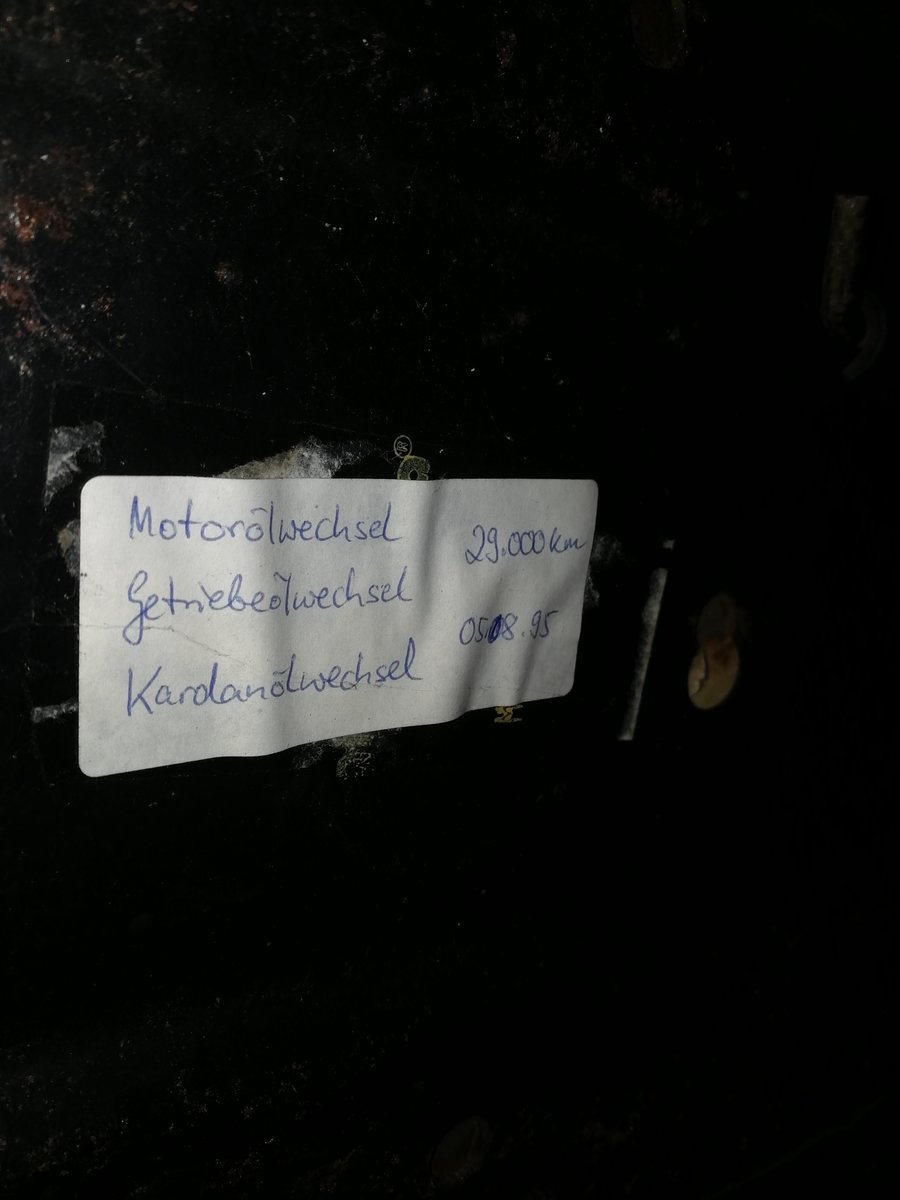 Motorölwechsel
29.000 km
Getriebeölwechsel
05.08.95
Kardanölwechsel